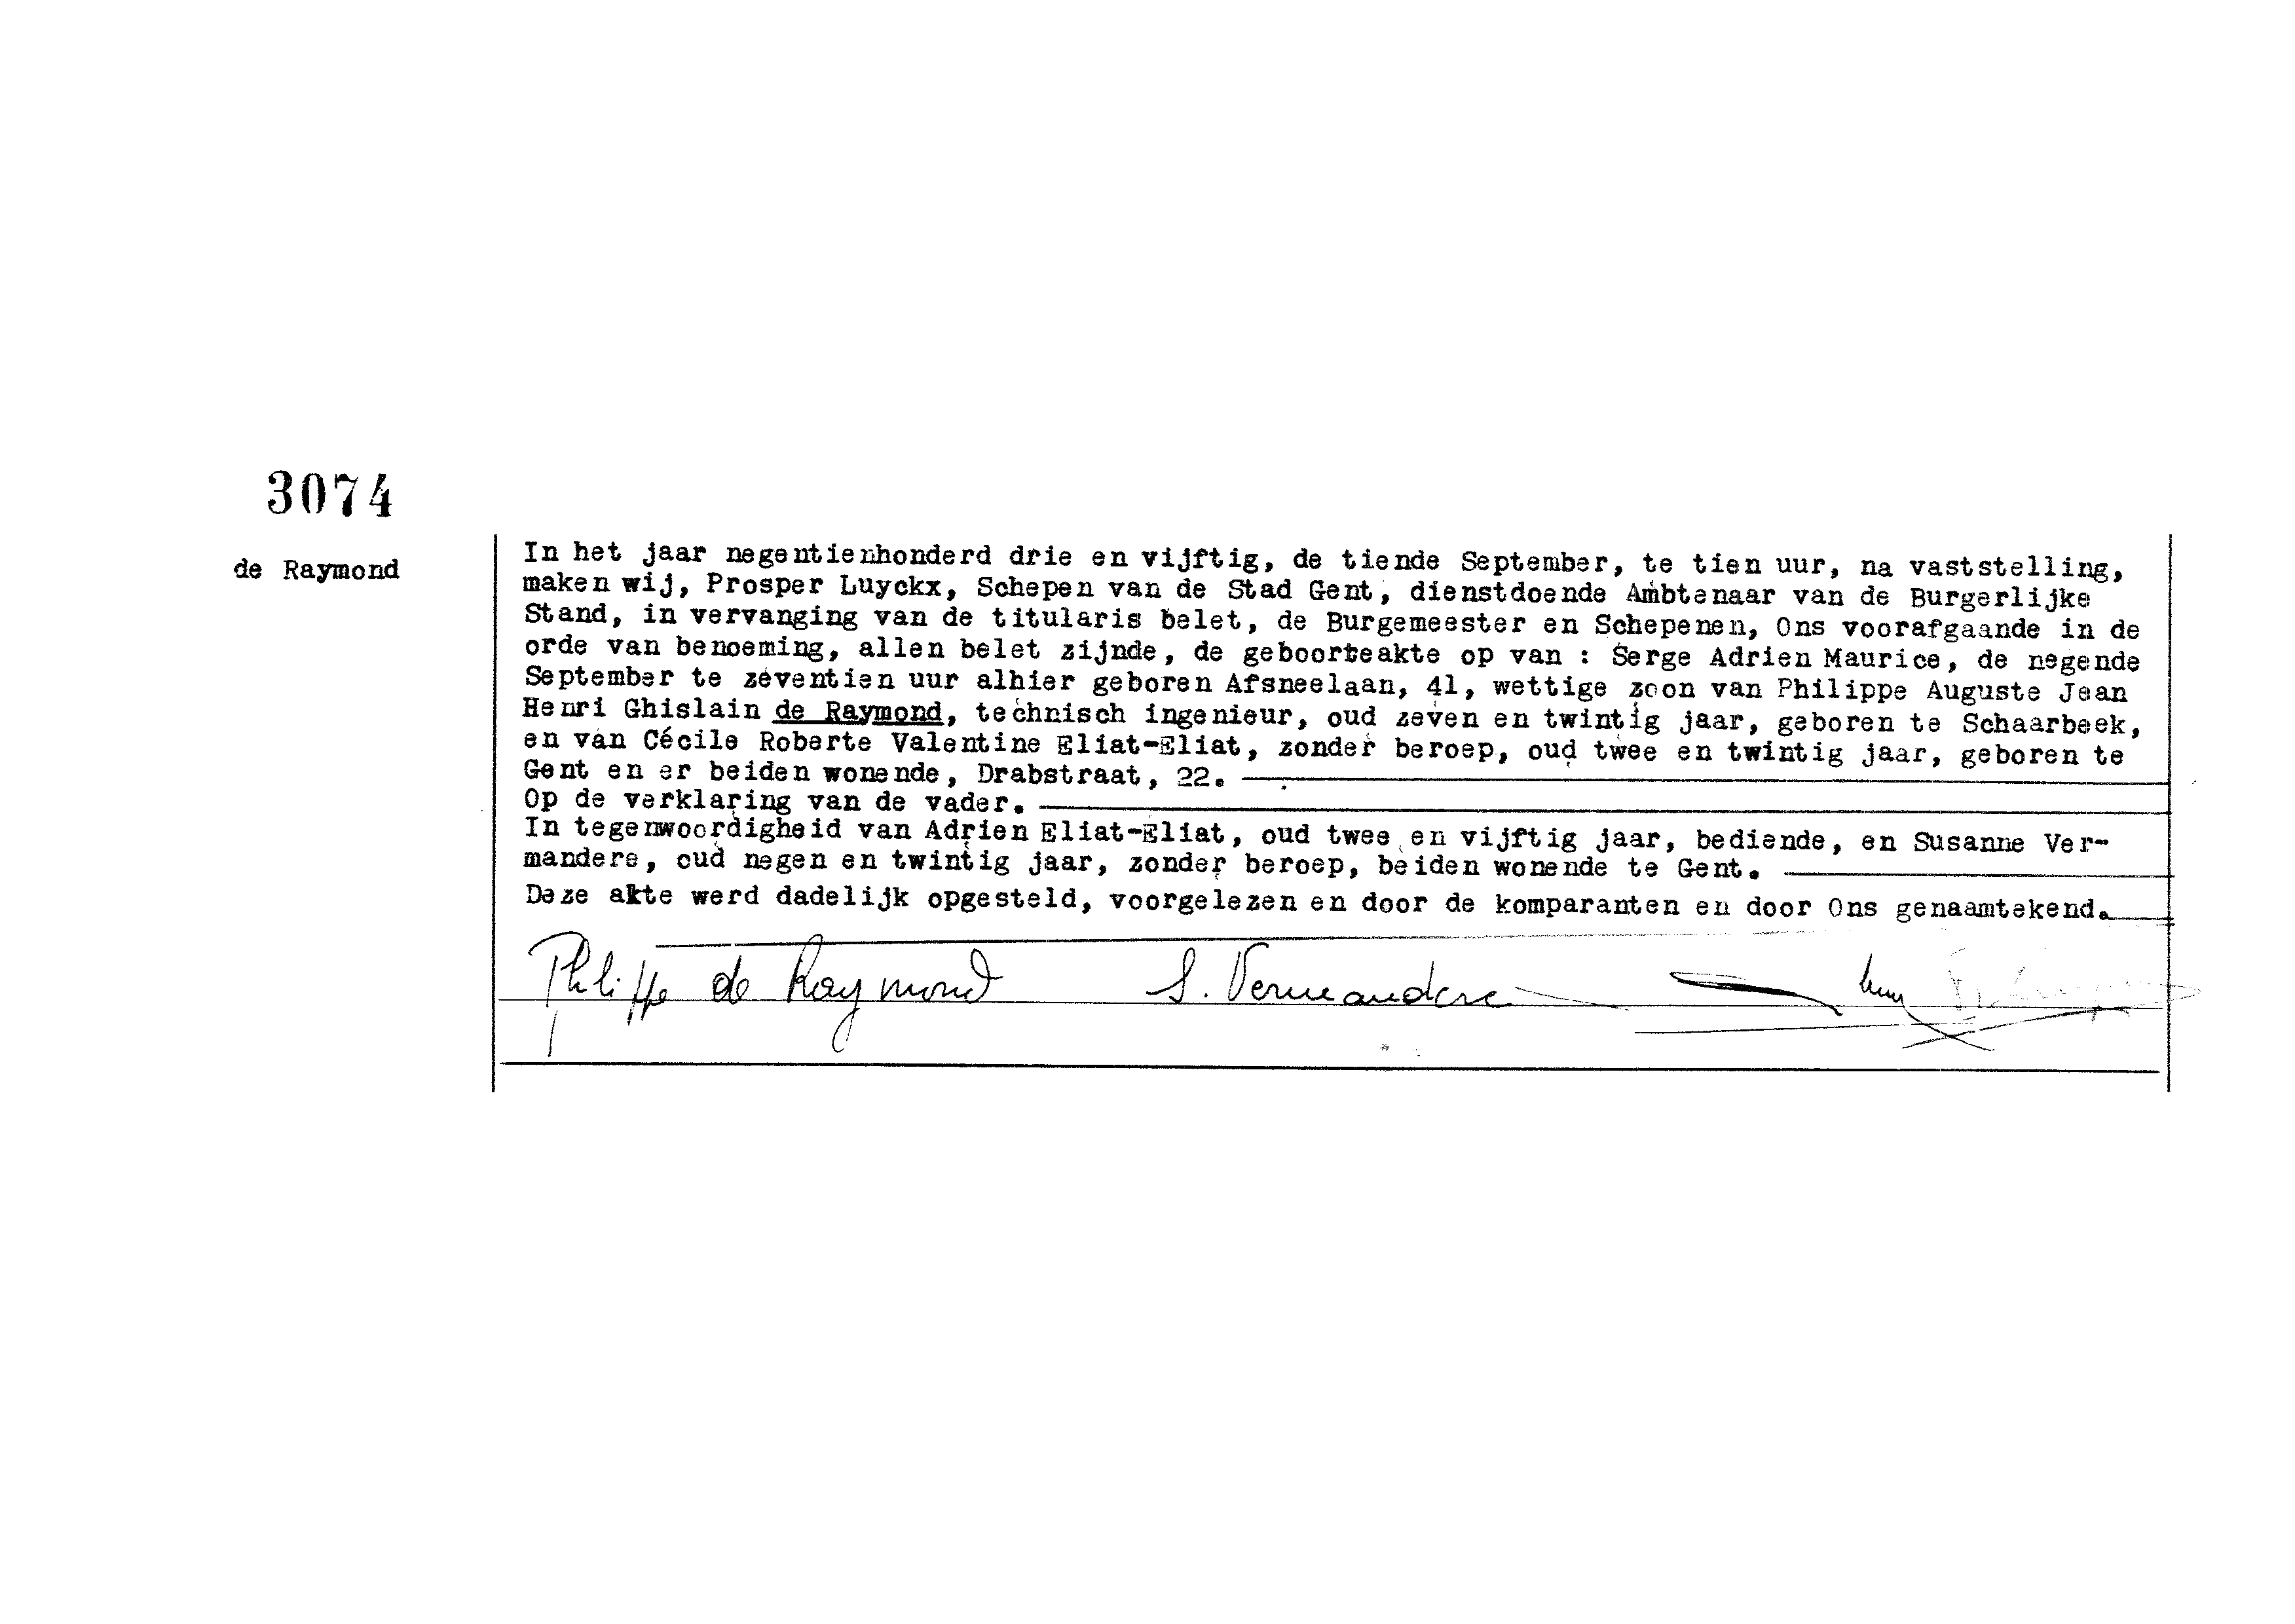 3074
de Raymond
In het jaar negentienhonderd drie en vijftig, de tiende September, te tien uur, na vaststelling,
maken wij, Prosper Luyckx, Schepen van de Stad Gent, dienstdoende Ambtenaar van de Burgerlijke
Stand, in vervanging van de titularis belet, de Burgemeester en Schepenen, Ons voorafgaande in de
orde van benoeming, allen belet zijnde, de geboorteakte op van : Serge Adrien Maurice, de negende
September te zeventien uur alhier geboren Afsneelaan, 41, wettige zoon van Philippe Auguste Jean
Henri Ghislain de Raymond, technisch ingenieur, oud zeven en twintig jaar, geboren te Schaarbeek,
en van Cécile Roberte Valentine Eliat-Eliat, zonder beroep, oud twee en twintig jaar, geboren te
Gent en er beiden wonende, Drabstraat, 22.
Op de verklaring van de vader.
In tegenwoordigheid van Adrien Eliat-Eliat, oud twee en vijftig jaar, bediende, en Susanne Ver-
mandere, oud negen en twintig jaar, zonder beroep, beiden wonende te Gent.
Deze akte werd dadelijk opgesteld, voorgelezen en door de komparanten en door Ons genaamtekend.
Philippe de Raymond S. Vermandere